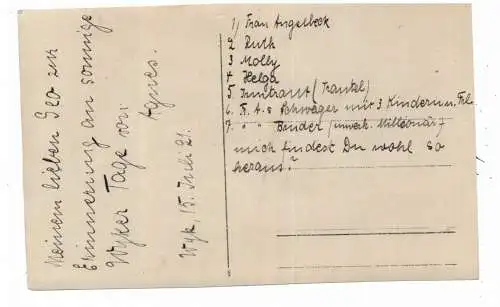 Meinem lieben Leo zur
Erinnerung an sonnige
Wyker Tage von
Agnes.
Wyk, 15. Juli 21.
1) Frau Angelbeck
2 Ruth
3 Molly
4 Helga
5. Irmtraut (Trautel)
6. F. A.s Schwager mit 3 Kindern u. Frl.
7. " " Bruder (amerik. Millionär)
mich findest Du wohl so
heraus?